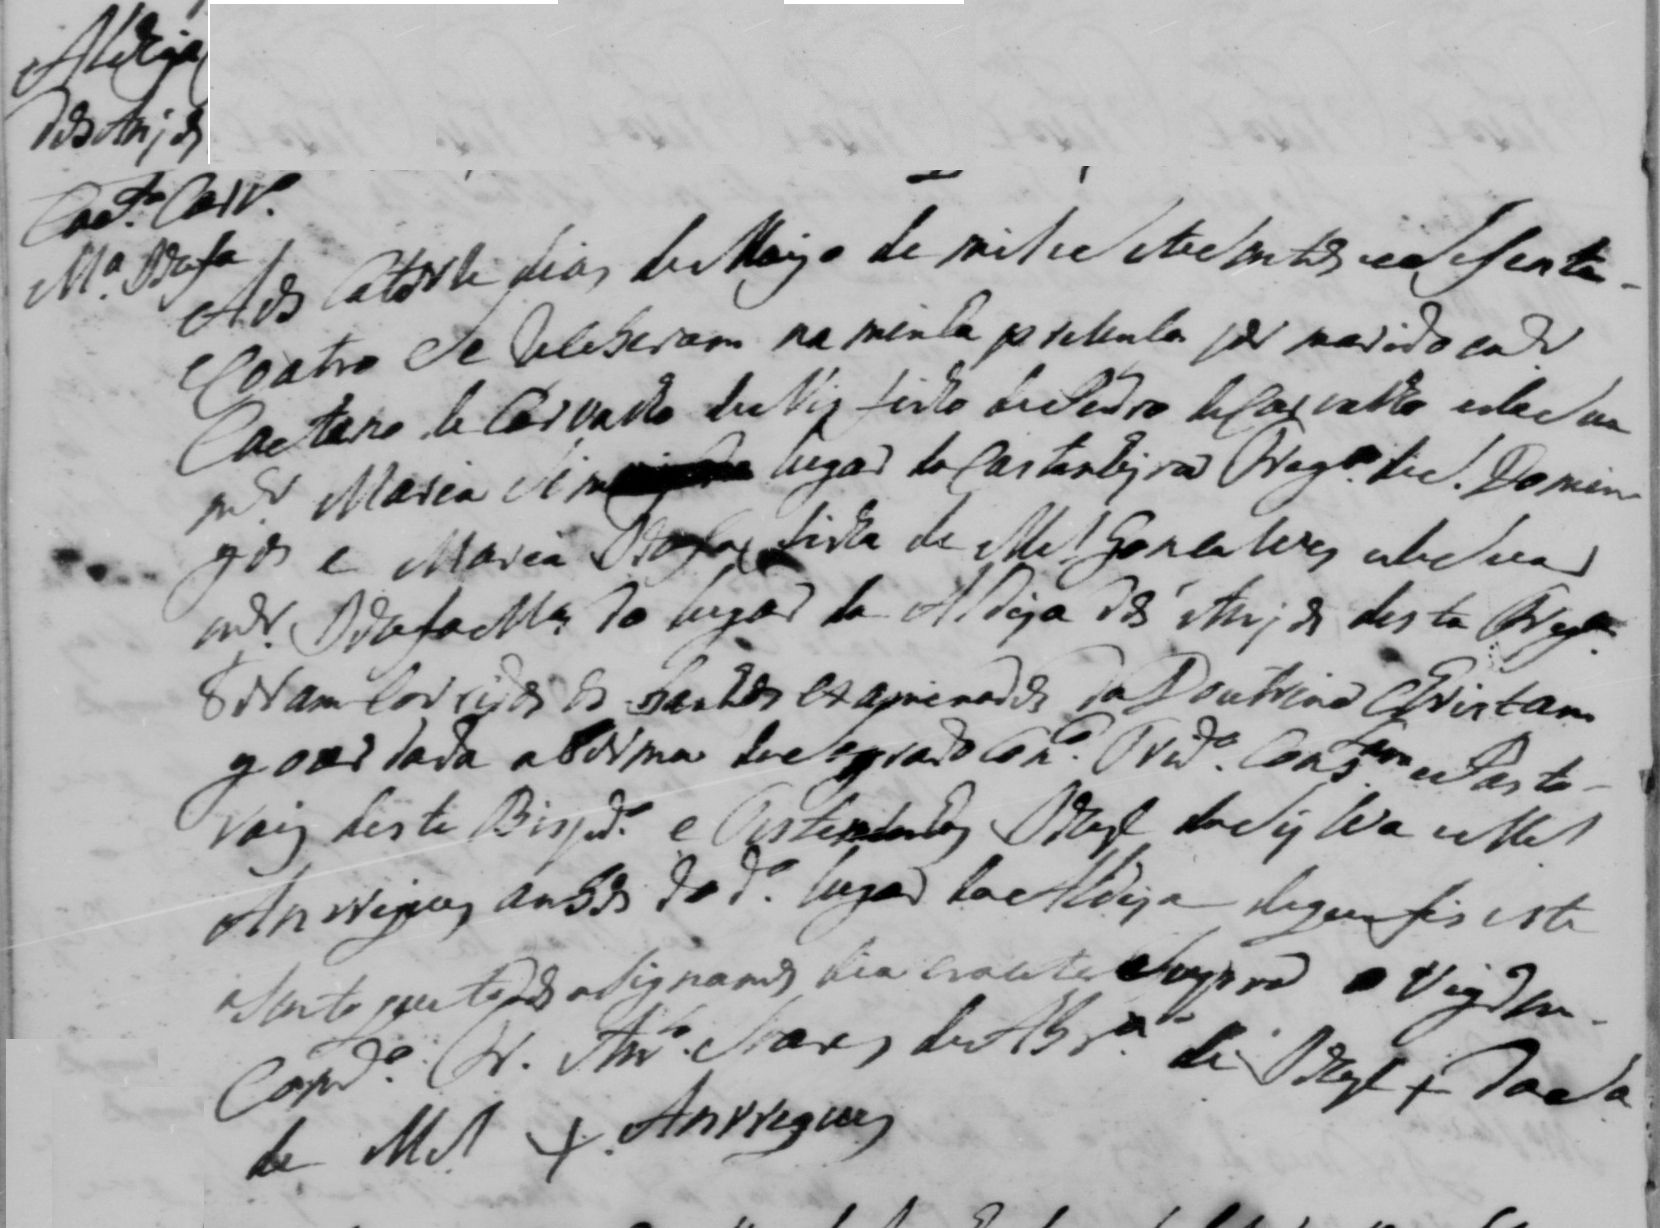 Aldeja
dos Anjos
Caet.º Carv.º
M.ª Rosa
Aos Catorse dias de Mayo de mil e setesentos e sesenta
e Coatro se Reseberam na minha prezensa por marido e m.er
Caetano de Carvalho filho de Pedro de Carvalho e de sua
m.er Maria lugar da Castanheyra Freg.ª de S. Domin
gos e Maria filha de M.el Goncalves e de sua
m.er do lugar da Aldeja dos Anjos desta Freg.ª
foram corridos os banhos examinados da Doutrina Christam
goardada a forma do Sagrado Con.º Trid.º Cons.am e Pasto
rais deste Bisp.do e Testemunhas da Sylva e M.el
Anrriques anbos do d.º lugar da Aldeja de que fis este
asento que todos asignamos dia era ut supra o Vig.ro en
Comd.º Fr. Ant.º Soares de de + da S.a
de M.el + Anrriques